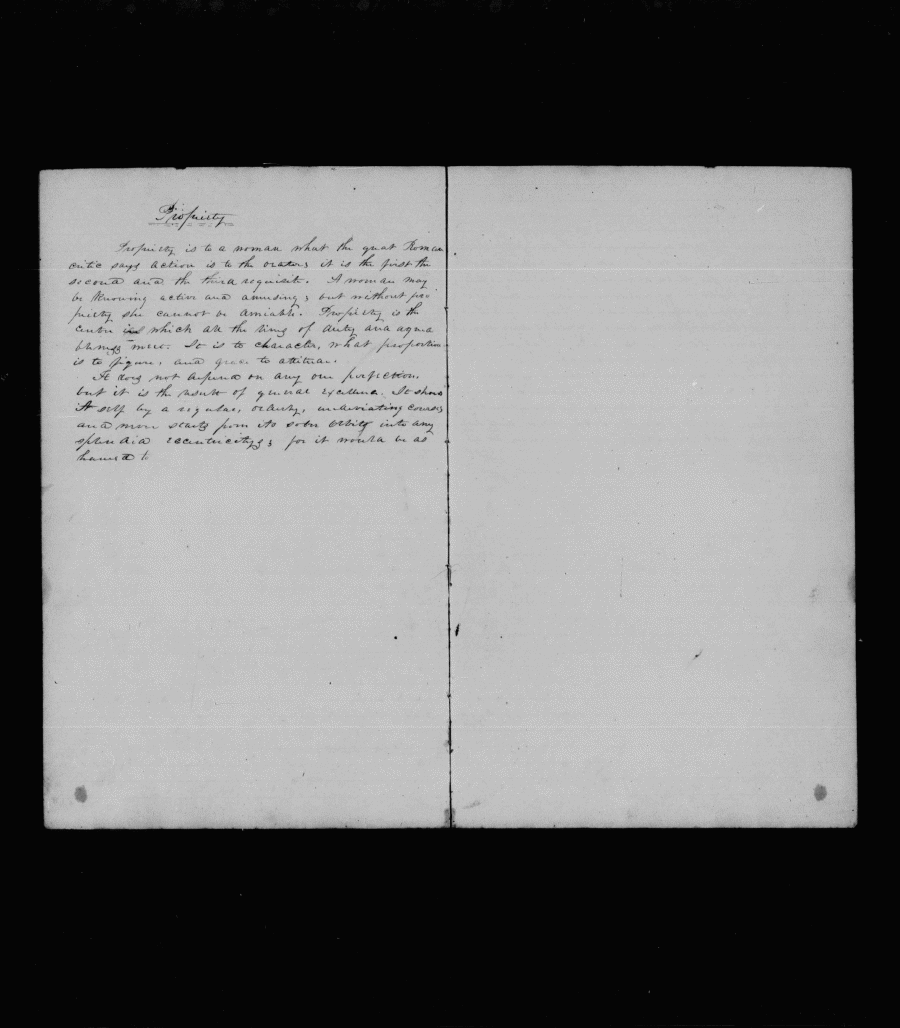 Propriety
Propriety is to a woman what the great Roman
critic says action is to the orator; it is the first the
second and the third requisite. A woman may
be knowing active and amusing; but without pro
priety she cannot be amiable. Propriety is the
centre in which all the lines of duty and agrea
bleness meet. It is to character, what proportion
is to figure, and grace to attitude.
It does not depend on any one perfection,
but it is the result of general excellence. It shows
it self by a regular, orderly, undeviating course;
and more starts from its sober orbits into any
splendid eccentricitys; for it would be as
hamed to